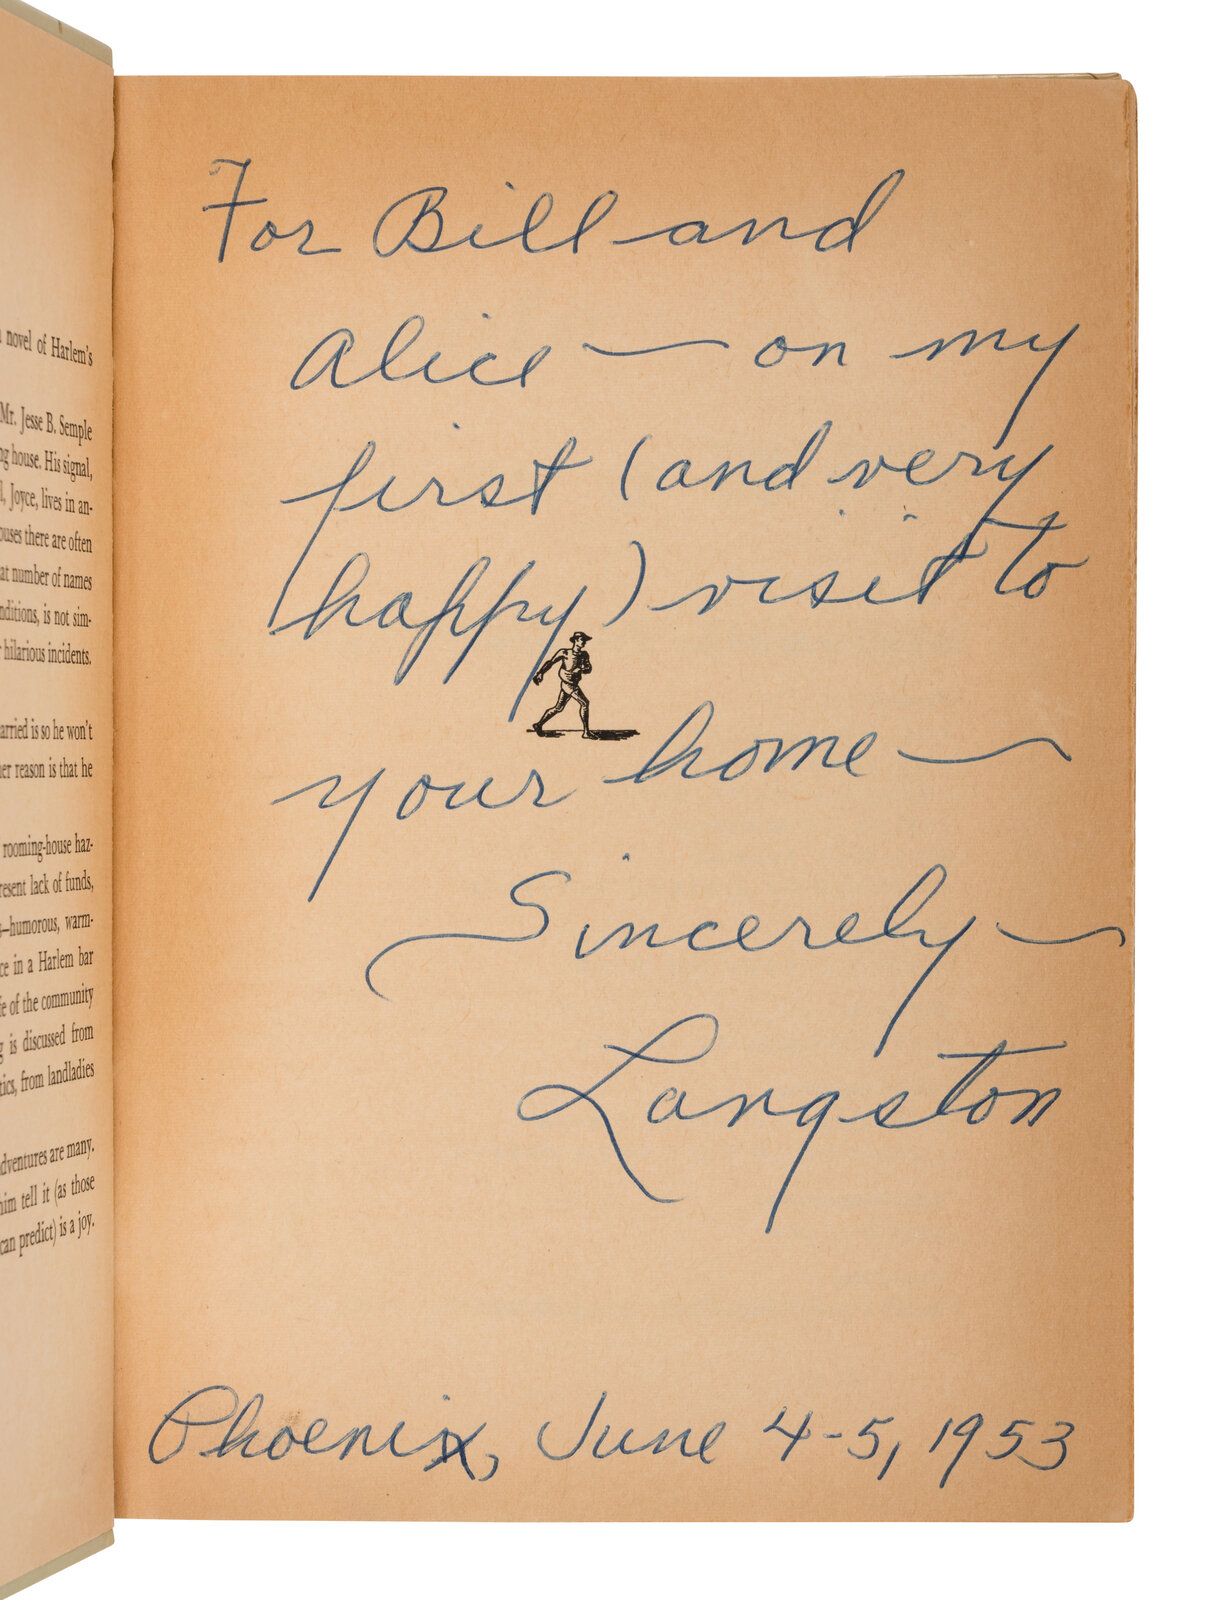 novel of Harlem's
Mr. Jesse B. Semple
ng house. His signal,
l, Joyce, lives in an-
ouses there are often
at number of names
nditions, is not sim-
r hilarious incidents.
arried is so he won't
her reason is that he
rooming-house haz-
resent lack of funds,
s—humorous, warm-
ce in a Harlem bar
fe of the community
g is discussed from
tics, from landladies
dventures are many.
him tell it (as those
can predict) is a joy.
For Bill and
Alice — on my
first (and very
happy) visit to
your home —
Sincerely —
Langston
Phoenix, June 4-5, 1953